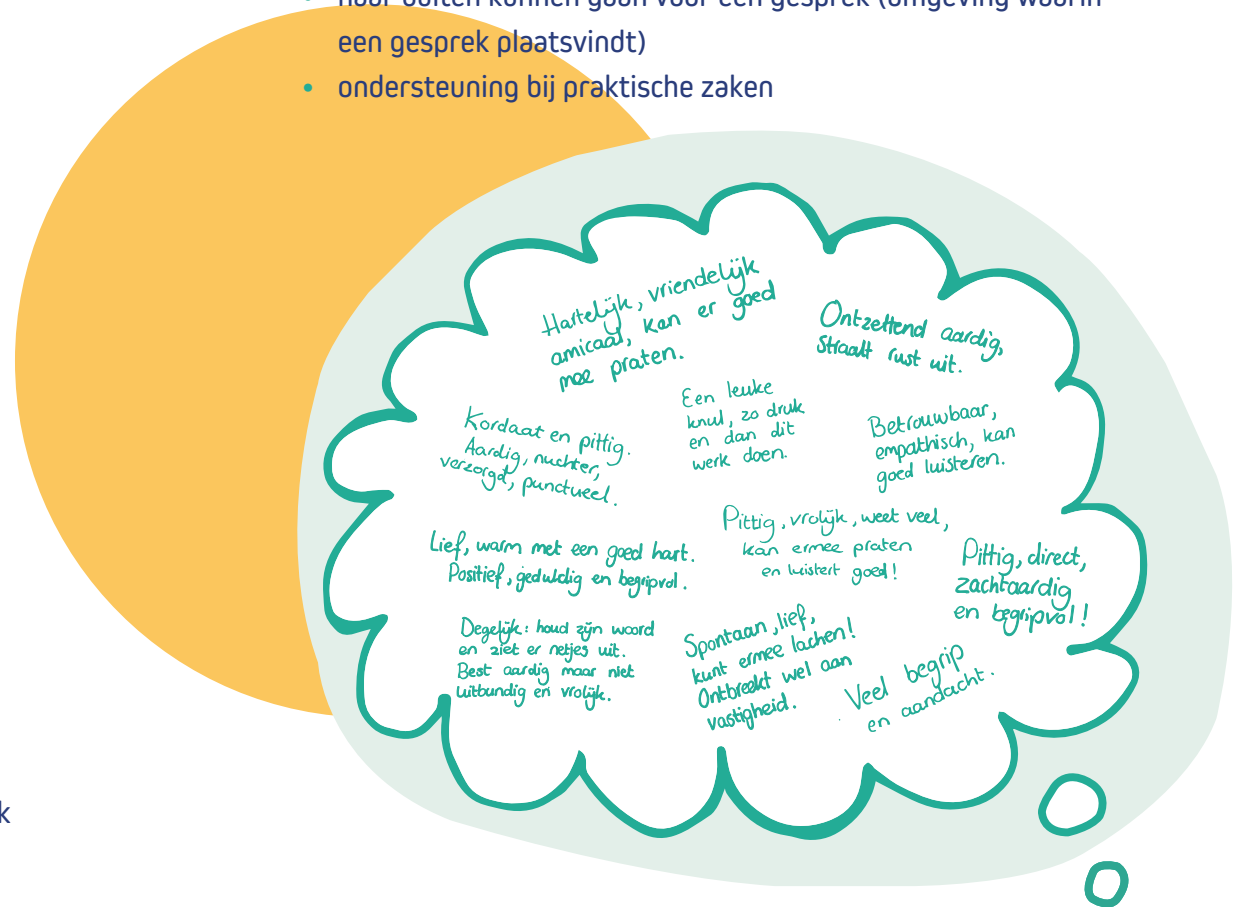 naar buiten kunnen gaan voor een gesprek (omgeving waarin
een gesprek plaatsvindt)
• ondersteuning bij praktische zaken
Hartelijk, vriendelijk
amicaal, kan er goed
mee praten.
Ontzettend aardig,
straalt rust uit.
Kordaat en pittig.
Aardig, nuchter,
verzorgd, punctueel.
Een leuke
knul, zo druk
en dan dit
werk doen.
Betrouwbaar,
empathisch, kan
goed luisteren.
Lief, warm met een goed hart.
Positief, geduldig en begripvol.
Pittig, vrolijk, weet veel,
kan ermee praten
en luistert goed!
Pittig, direct,
zachtaardig
en begripvol!
Degelijk: houd zijn woord
en ziet er netjes uit.
Best aardig maar niet
uitbundig en vrolijk.
Spontaan, lief,
kunt ermee lachen!
Ontbreekt wel aan
vastigheid.
Veel begrip
en aandacht.
k